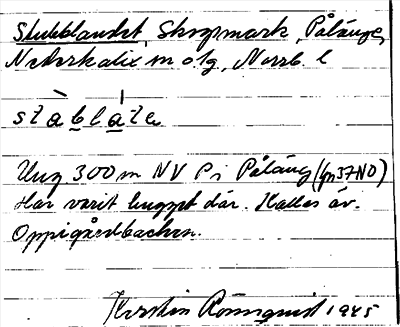 Stubblandet, Skogsmark, Pålänge,
Nederkalix m o lg, Norrb. l
stàblátɐ
Ung 300 m NV P i Påläng (gn37NO)
Har varit byggt där. Kallas äv.
Oppigårdbacken.
Kerstin Rönnqvist 1945